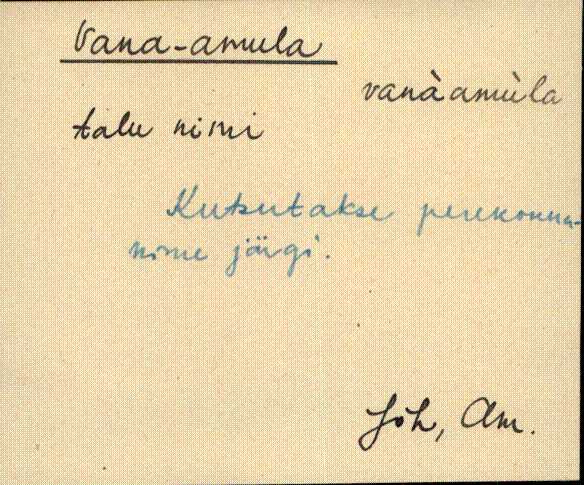 Vana-amula
vanàamùla
talu nimi
Kutsutakse perekonna-
nime järgi.
Jõh, Am.